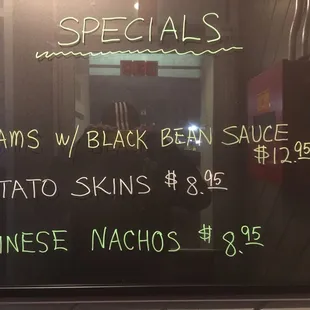 SPECIALS
AMS w/ BLACK BEAN SAUCE $12.95
TATO SKINS $8.95
INESE NACHOS $8.95